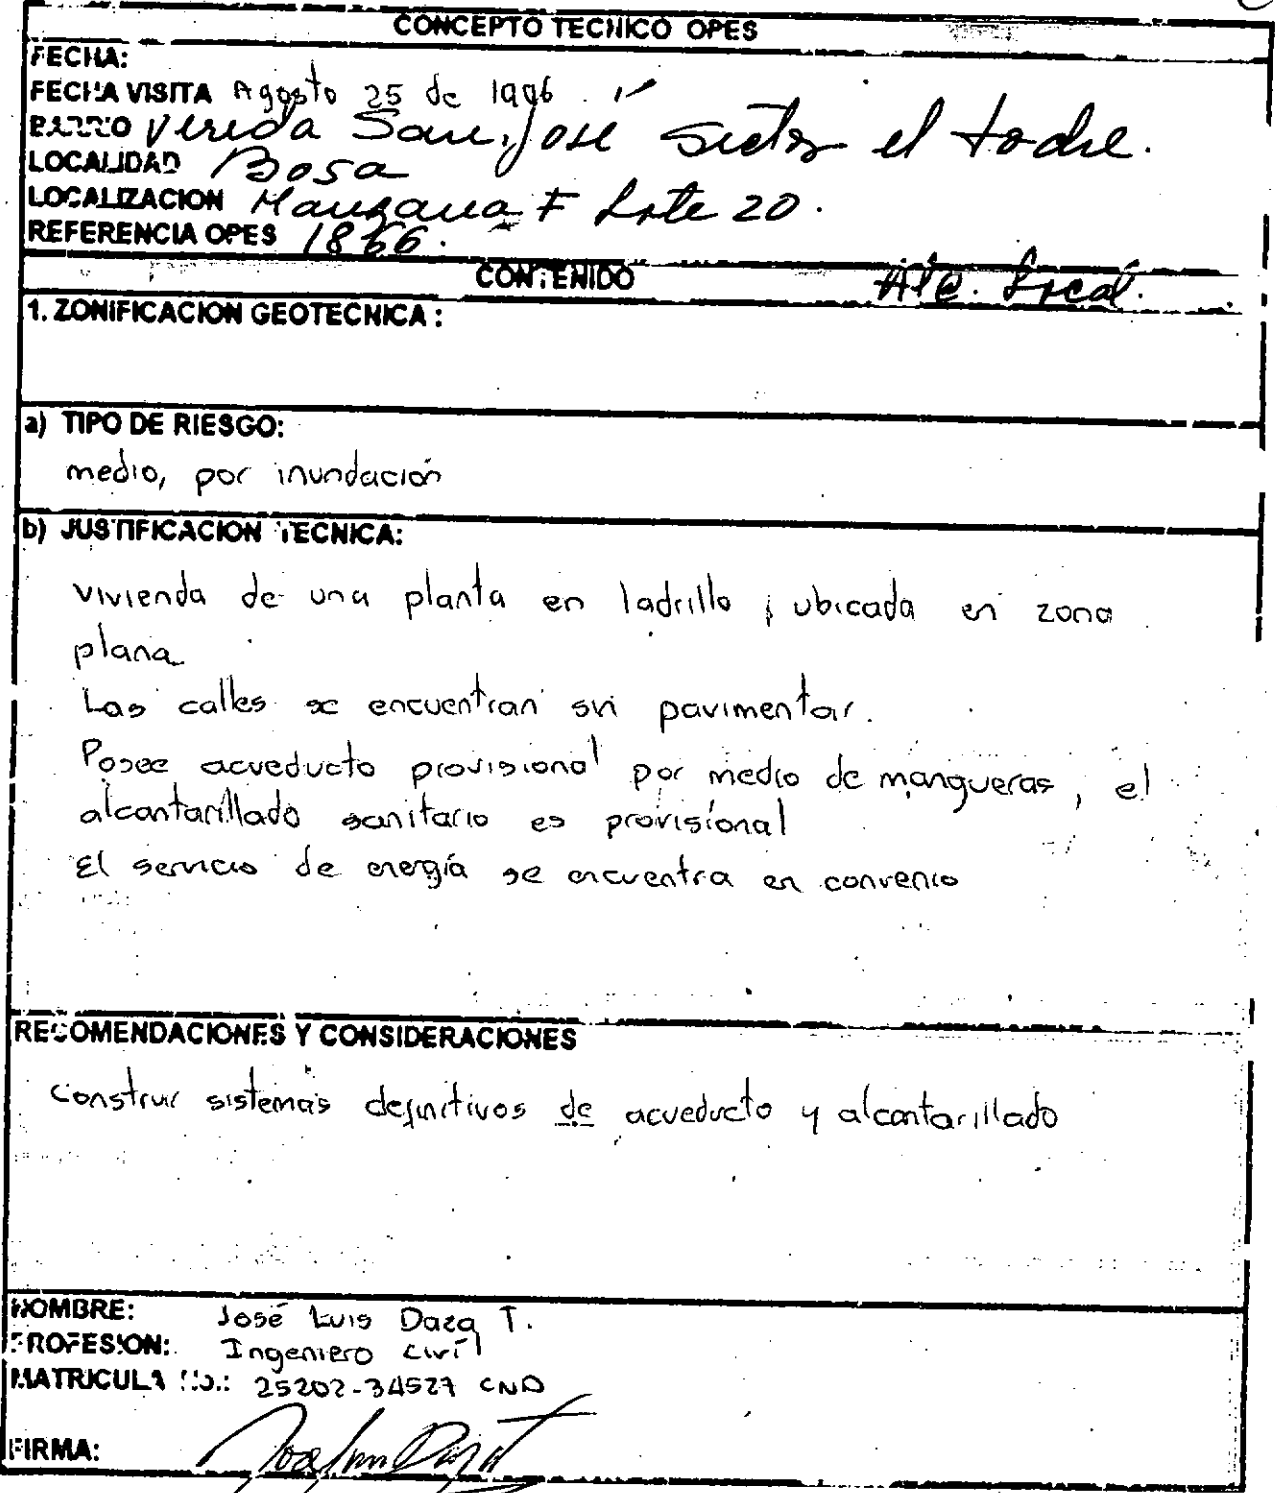 CONCEPTO TECNICO OPES
FECHA:
FECHA VISITA Agosto 25 de 1996
BARRIO Vereda San José Sector el
LOCALIDAD Bosa
LOCALIZACION Manzana F Lote 20.
REFERENCIA OPES 1866.
CONTENIDO Alc. Local.
1. ZONIFICACION GEOTECNICA :
a) TIPO DE RIESGO:
medio, por inundación
b) JUSTIFICACION TECNICA:
vivienda de una planta en ladrillo, ubicada en zona
plana
Las calles se encuentran sin pavimentar.
Posee acueducto provisional por medio de mangueras, el
alcantarillado sanitario es provisional
El servicio de energía se encuentra en convenio
RECOMENDACIONES Y CONSIDERACIONES
Construir sistemas definitivos de acueducto y alcantarillado
NOMBRE: José Luis Daza T.
PROFESION: Ingeniero civil
MATRICULA No.: 25202-34527 CND
FIRMA: